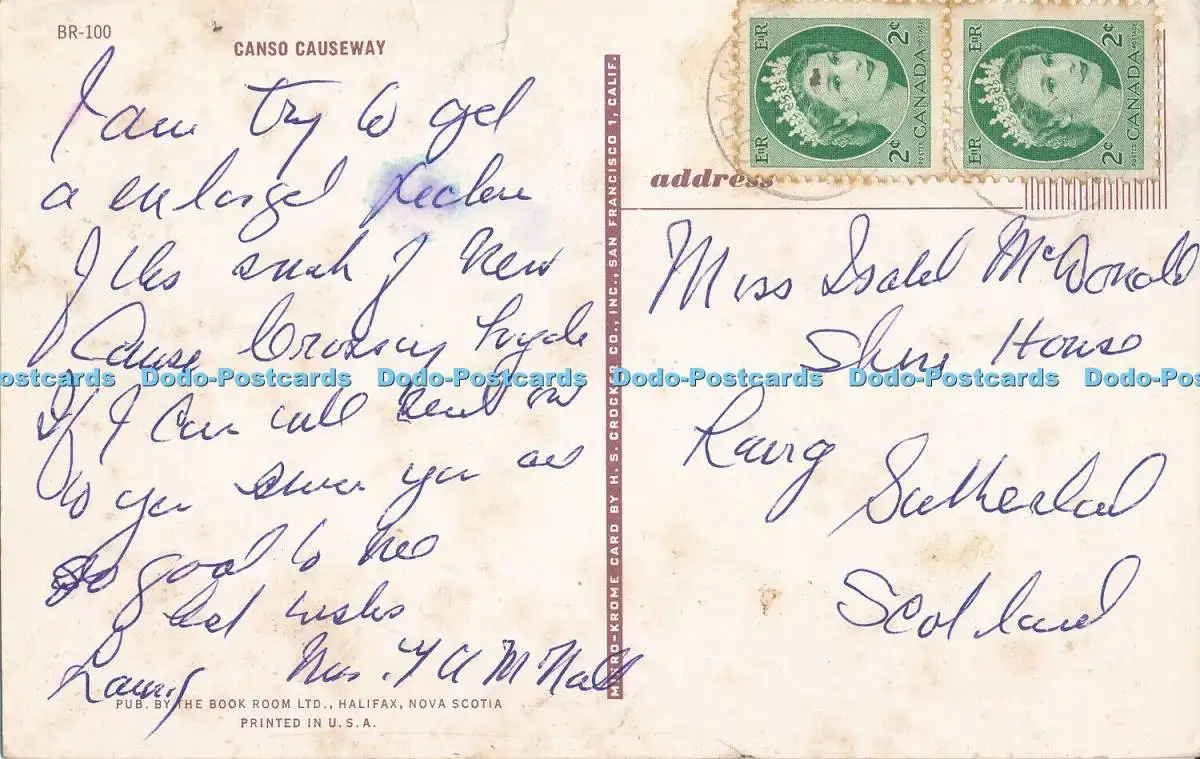 BR-100
CANSO CAUSEWAY
I am try to get
a enlarged
of this of New
Cause Crossing
If I can will send on
to you since you are
so good to me
best wishes
Mrs. F A McNall
PUB. BY THE BOOK ROOM LTD., HALIFAX, NOVA SCOTIA
PRINTED IN U.S.A.
MIRRO-KROME CARD BY H. S. CROCKER CO., INC., SAN FRANCISCO 1, CALIF.
EIIR 2¢
POSTES CANADA POSTAGE
EIIR 2¢
EIIR 2¢
POSTES CANADA POSTAGE
EIIR 2¢
address
Miss Isabel McDonald
House
Lairg
Sutherland
Scotland
Dodo-Postcards Dodo-Postcards Dodo-Postcards Dodo-Postcards Dodo-Postcards